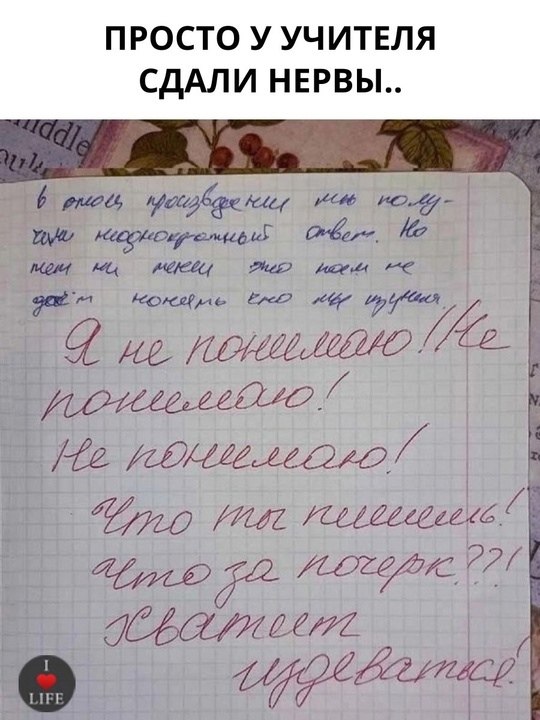 ПРОСТО У УЧИТЕЛЯ
СДАЛИ НЕРВЫ..
В этом произведении мы полу-
чили неоднократный ответ. Но
тем ни менее это нам не
даёт понять что мы изучили
Я не понимаю!! Не
понимаю!
Не понимаю!
Что ты пишешь!
Что за почерк??!
Хватит
издеваться!
I
LIFE